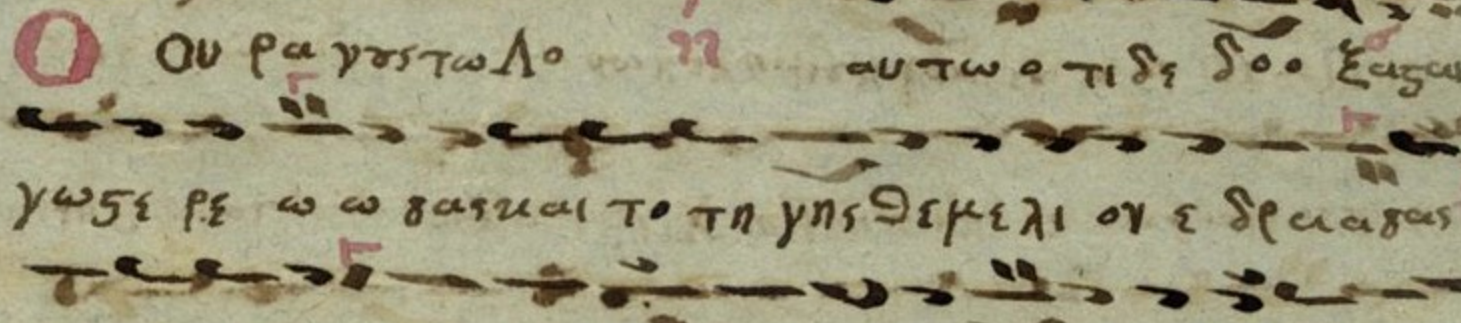 Ο Ου ρα νουστωλο αυτω ο τι δε δοο ξαζω
γωστε ρε ω ω σας και το τη γης θεμελι ον ε δρα α σας